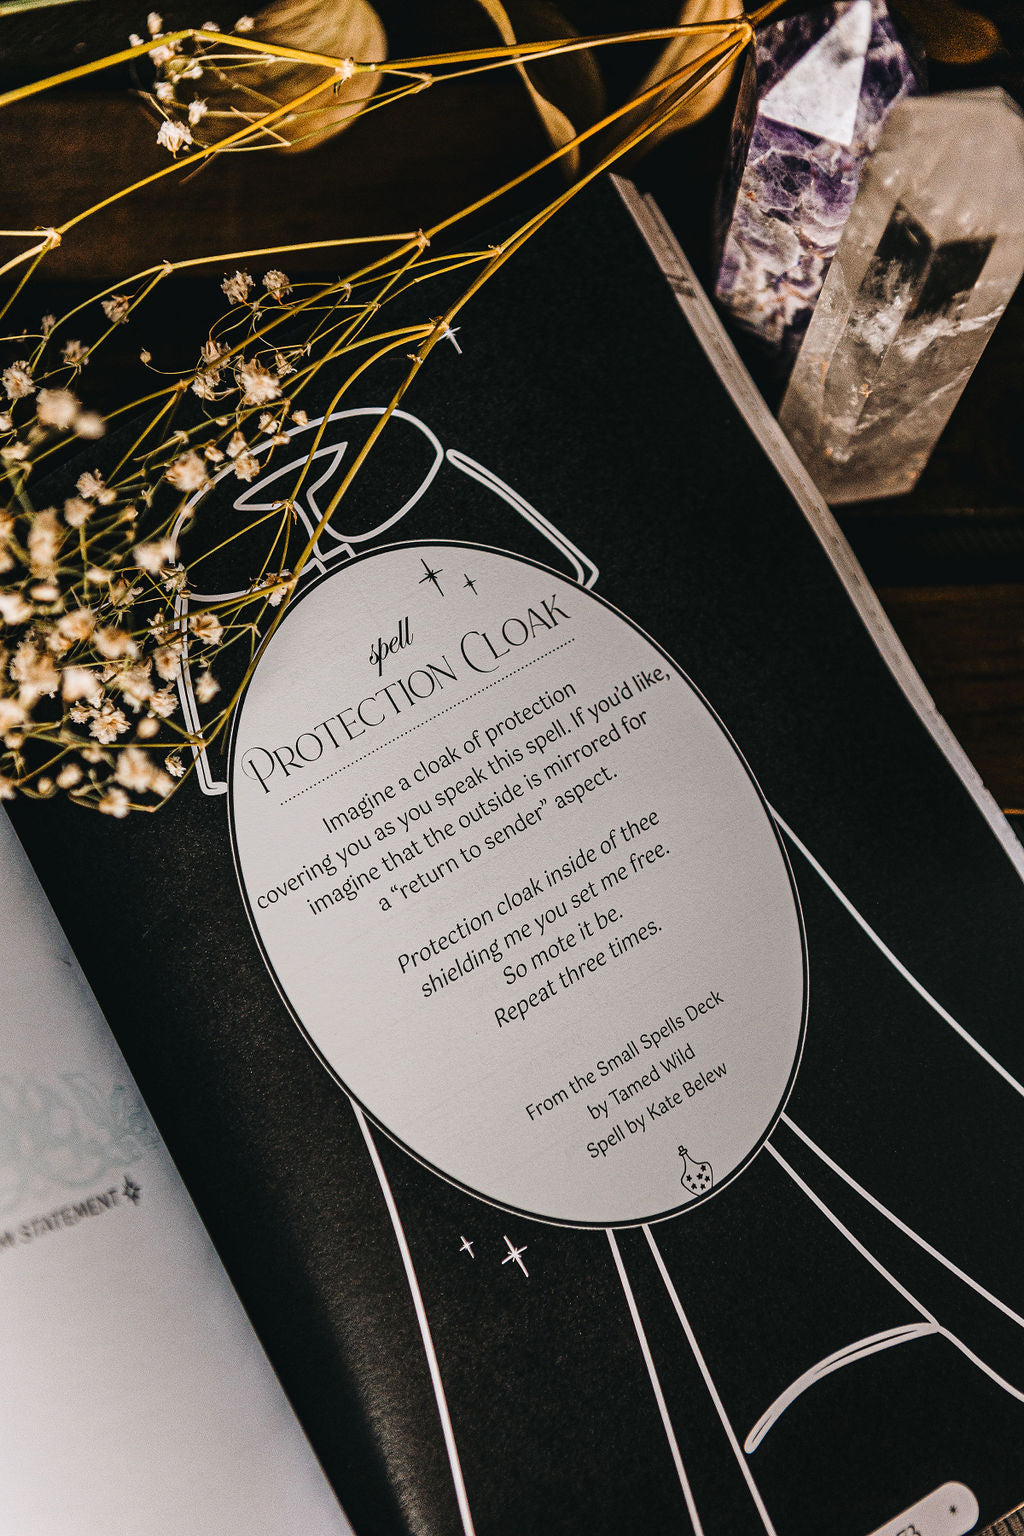 spell
PROTECTION CLOAK
Imagine a cloak of protection
covering you as you speak this spell. If you'd like,
imagine that the outside is mirrored for
a “return to sender” aspect.
Protection cloak inside of thee
shielding me you set me free.
So mote it be.
Repeat three times.
From the Small Spells Deck
by Tamed Wild
Spell by Kate Belew
STATEMENT